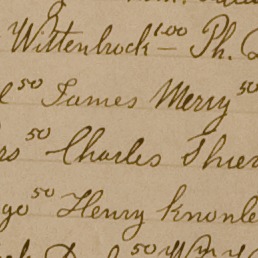 Wittenbrock 1.00 Ph.
50 James Merry 50
50 Charles Thier
50 Henry Knonle
50 Wm